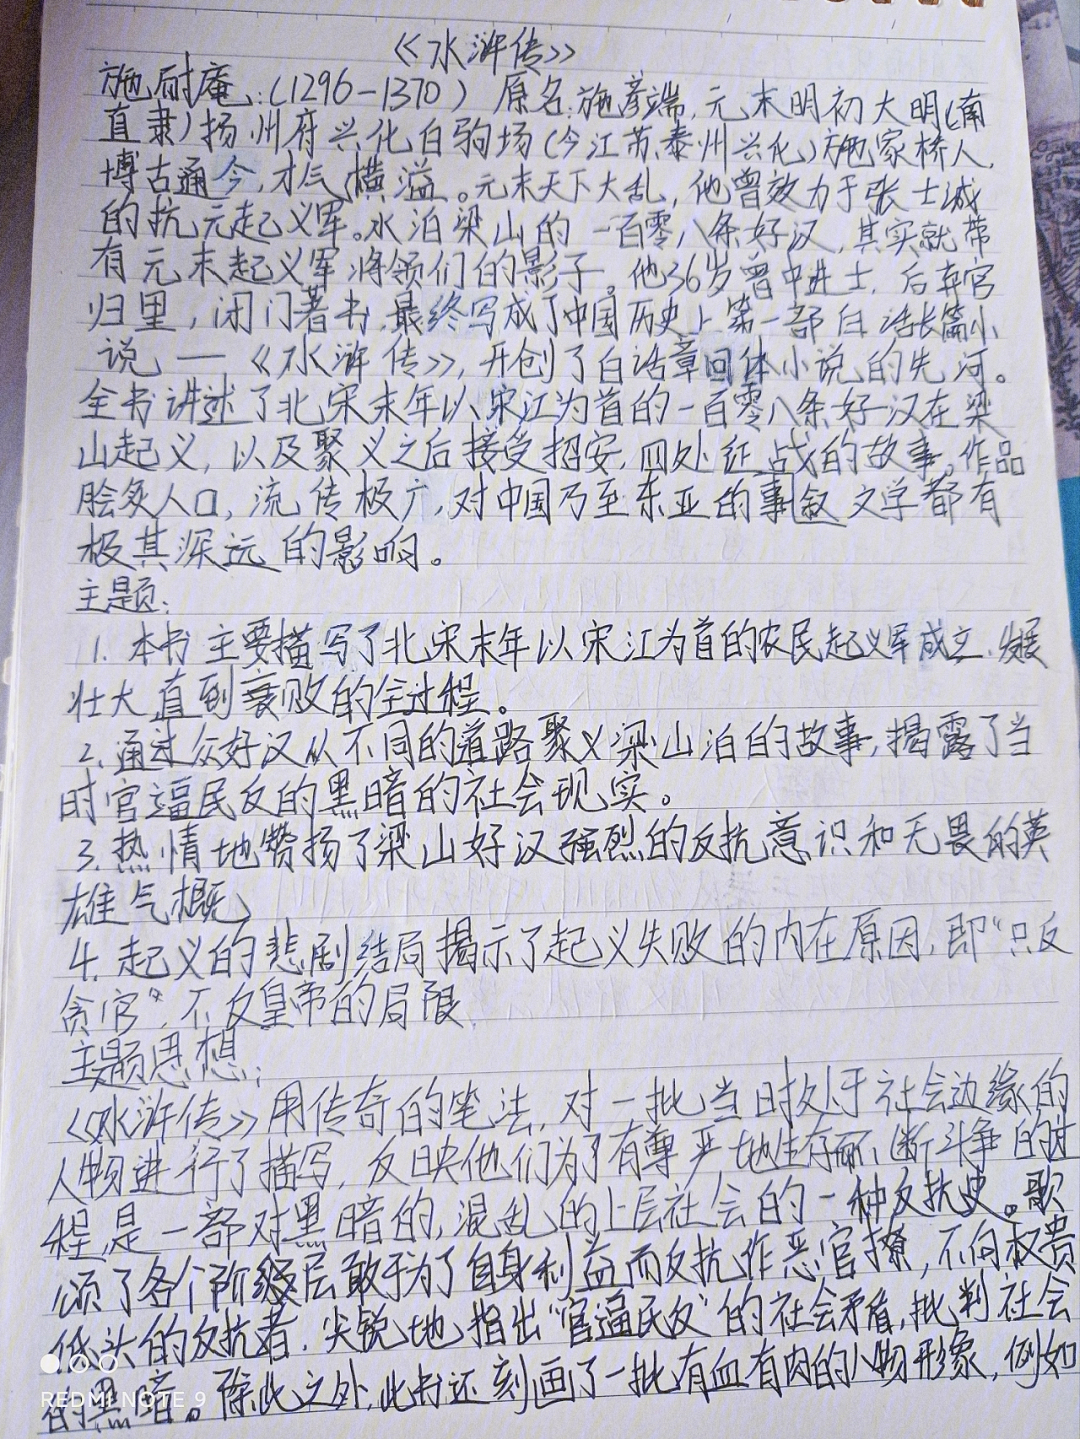 《水浒传》
施耐庵:(1296-1370)原名:施彦端,元末明初大明(南
直隶)扬州府兴化白驹场(今江苏泰州兴化)施家桥人,
博古通今,才气横溢。元末天下大乱,他曾效力于张士诚
的抗元起义军。水泊梁山的一百零八条好汉,其实就带
有元末起义军将领们的影子。他36岁曾中进士,后弃官
归里,闭门著书,最终写成了中国历史上第一部白话长篇小
说——《水浒传》,开创了白话章回体小说的先河。
全书讲述了北宋末年以宋江为首的一百零八条好汉在梁
山起义,以及聚义之后接受招安,四处征战的故事。作品
脍炙人口,流传极广,对中国乃至东亚的事叙文学都有
极其深远的影响。
主题:
1.本书主要描写了北宋末年以宋江为首的农民起义军成立、发展
壮大直到衰败的全过程。
2.通过众好汉从不同的道路聚义梁山泊的故事,揭露了当
时官逼民反的黑暗的社会现实。
3.热情地赞扬了梁山好汉强烈的反抗意识和无畏的英
雄气概
4.起义的悲剧结局揭示了起义失败的内在原因,即“只反
贪官”,不反皇帝的局限
主题思想:
《水浒传》用传奇的笔法,对一批当时处于社会边缘的
人物进行了描写,反映他们为了有尊严地生存而不断斗争的过
程,是一部对黑暗的,混乱的上层社会的一种反抗史。歌
颂了各个阶级层敢于为了自身利益而反抗作恶官撩,不向权贵
低头的反抗者,尖锐地指出“官逼民反”的社会矛盾,批判社会
的黑暗。除此之外,此书还刻画了一批有血有肉的人物形象,例如
REDMI NOTE 9